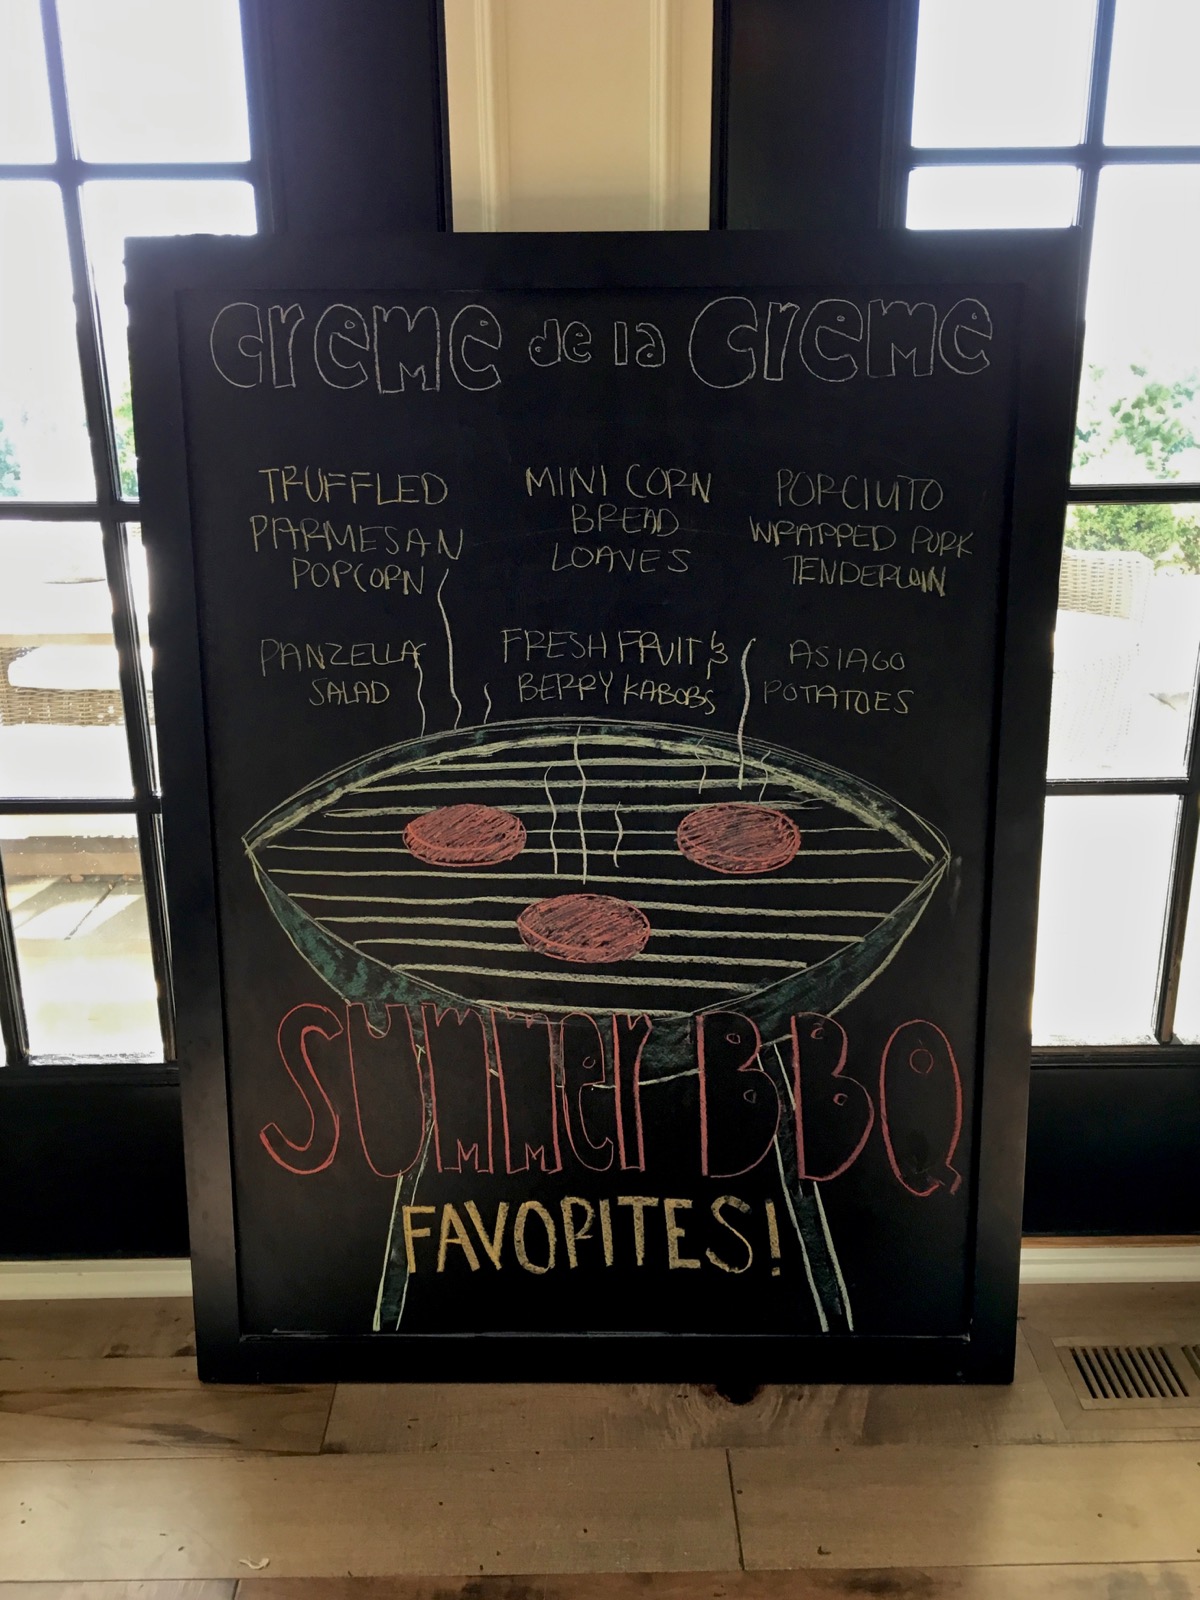 Creme de la Creme
TRUFFLED
PARMESAN
POPCORN
MINI CORN
BREAD
LOAVES
PORCIUTO
WRAPPED PORK
TENDERLOIN
PANZELLA
SALAD
FRESH FRUIT &
BERRY KABOBS
ASIAGO
POTATOES
SUMMer BBQ
FAVORITES!